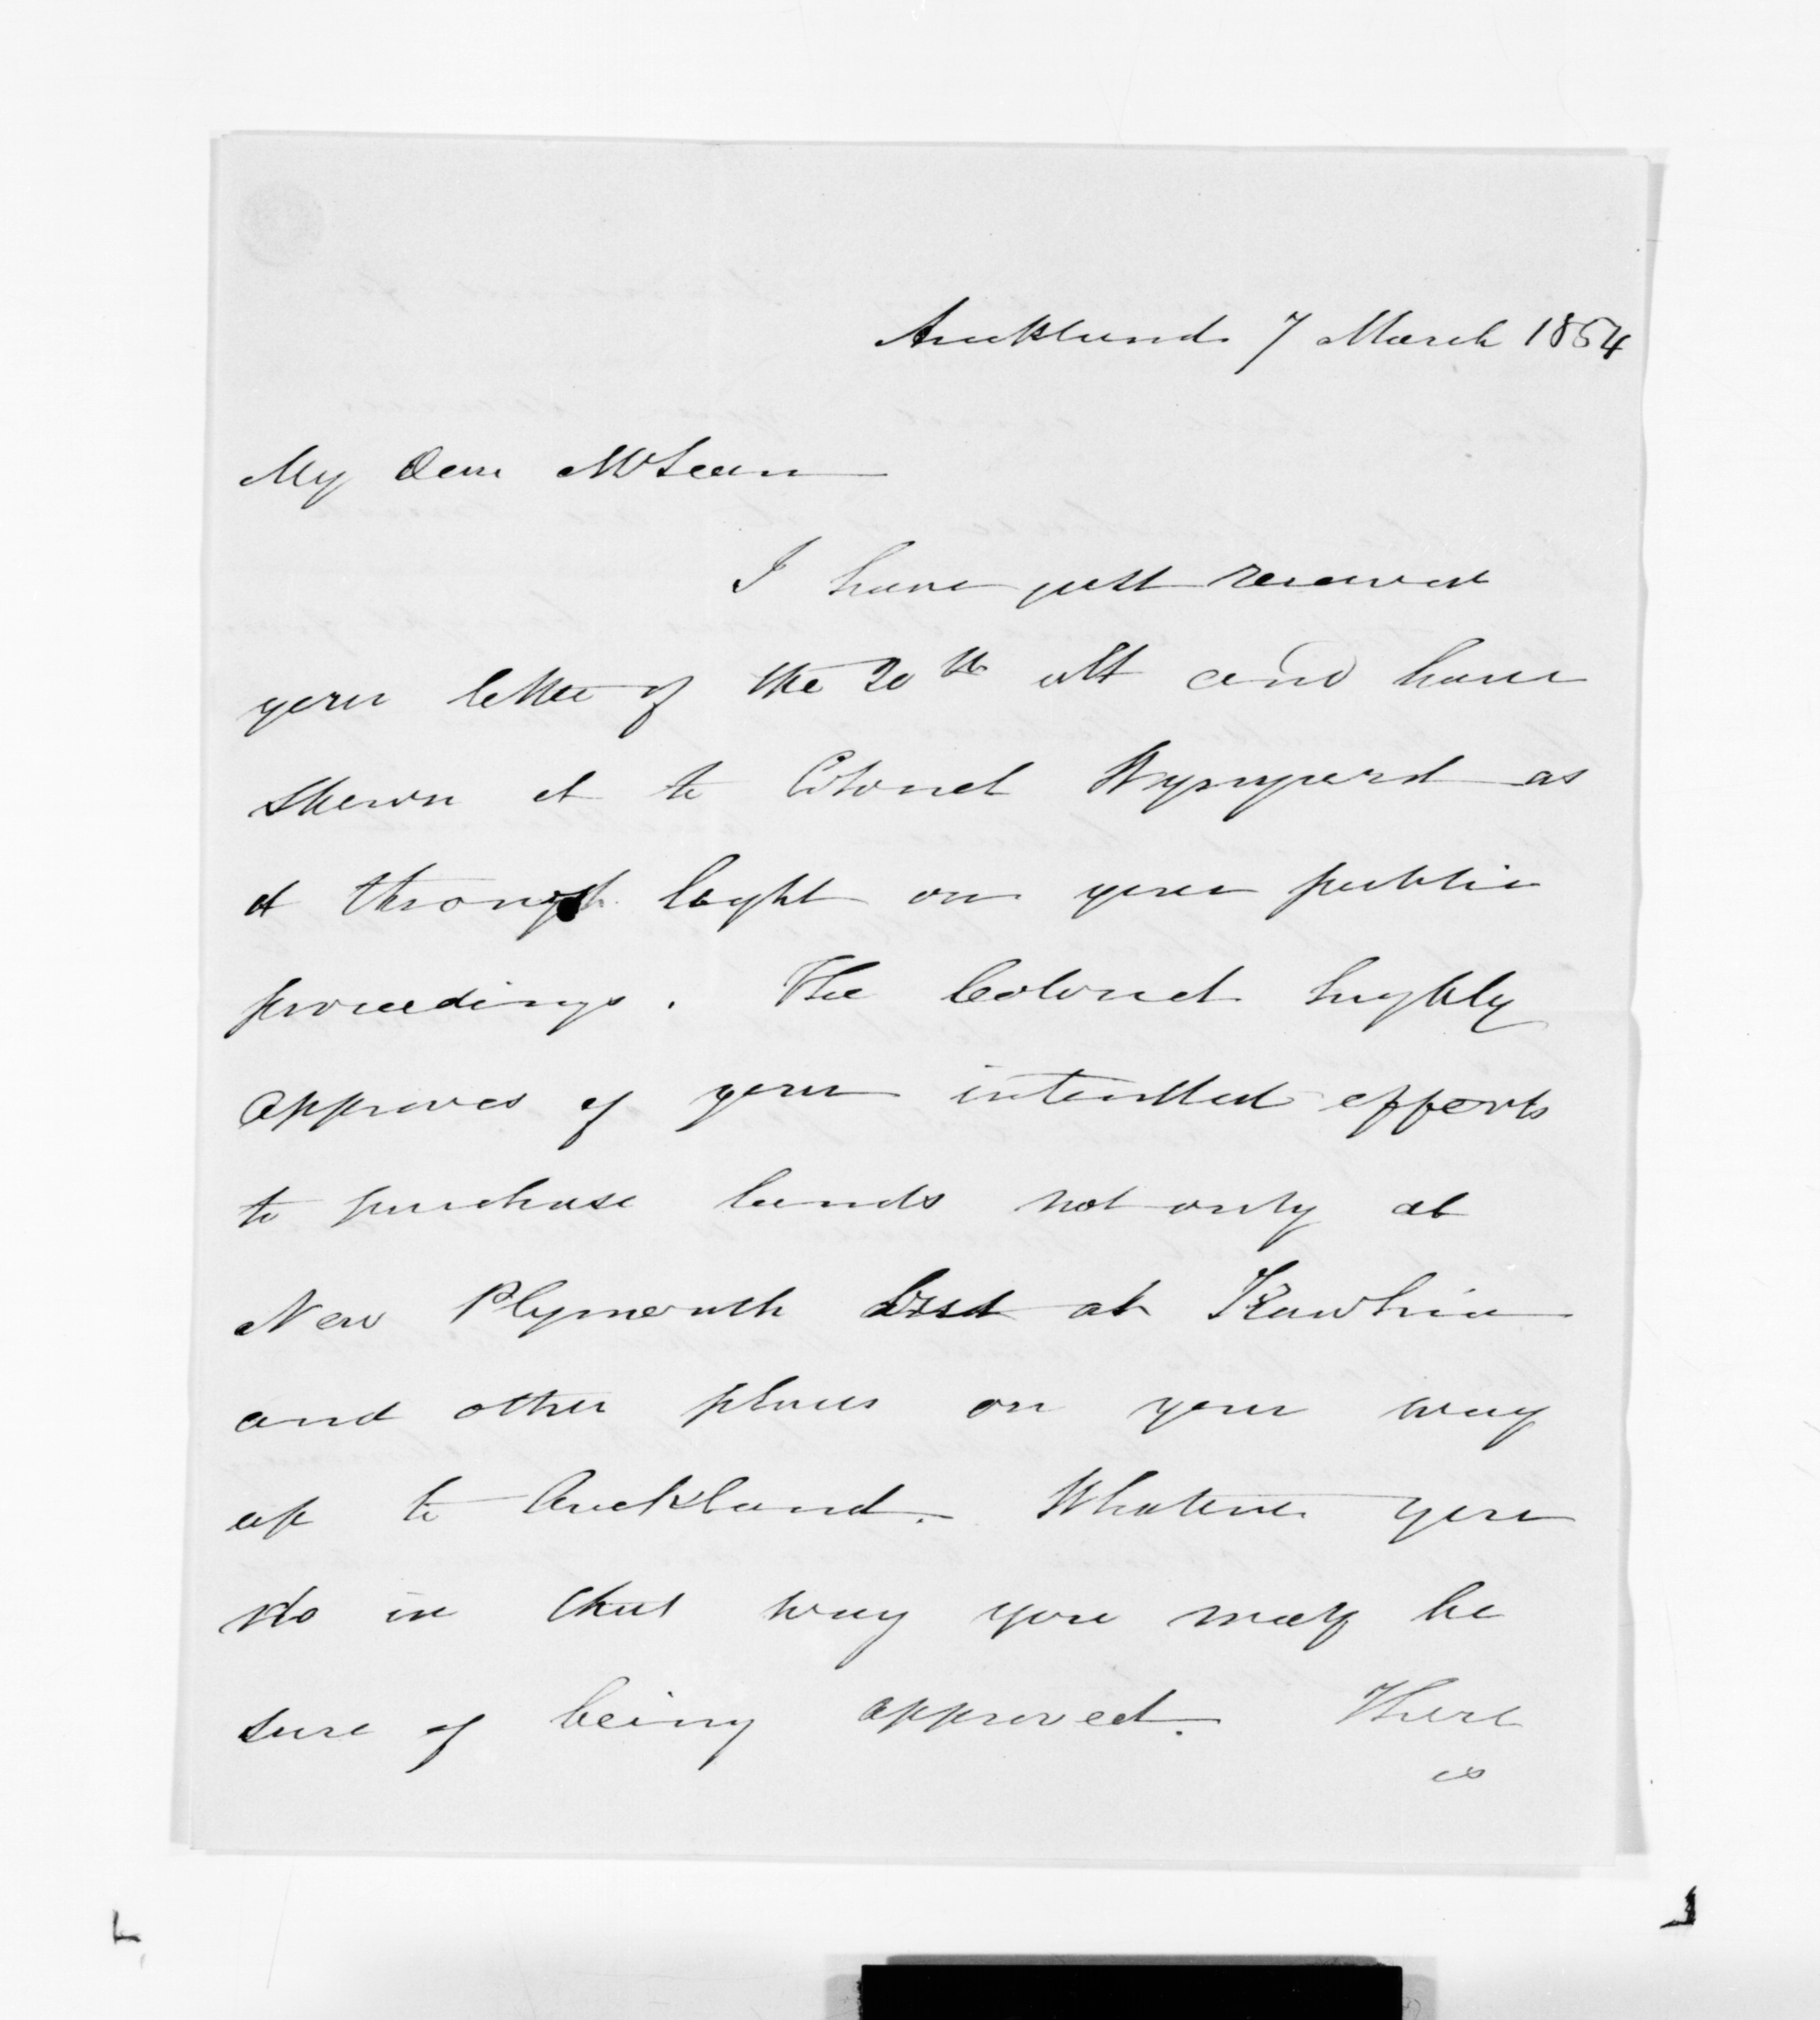 Auckland 7 March 1854
My Dear McLean
I have just received
your letter of the 20th ult and have
shewn it to Colonel Wynyard as
it through light on your public
proceedings. The Colonel highly
approves of your intended efforts
to purchase lands not only at
New Plymouth but at Kawhia
and other places on your way
up to Auckland. Whatever you
do in that way you may be
sure of being approved. There
is